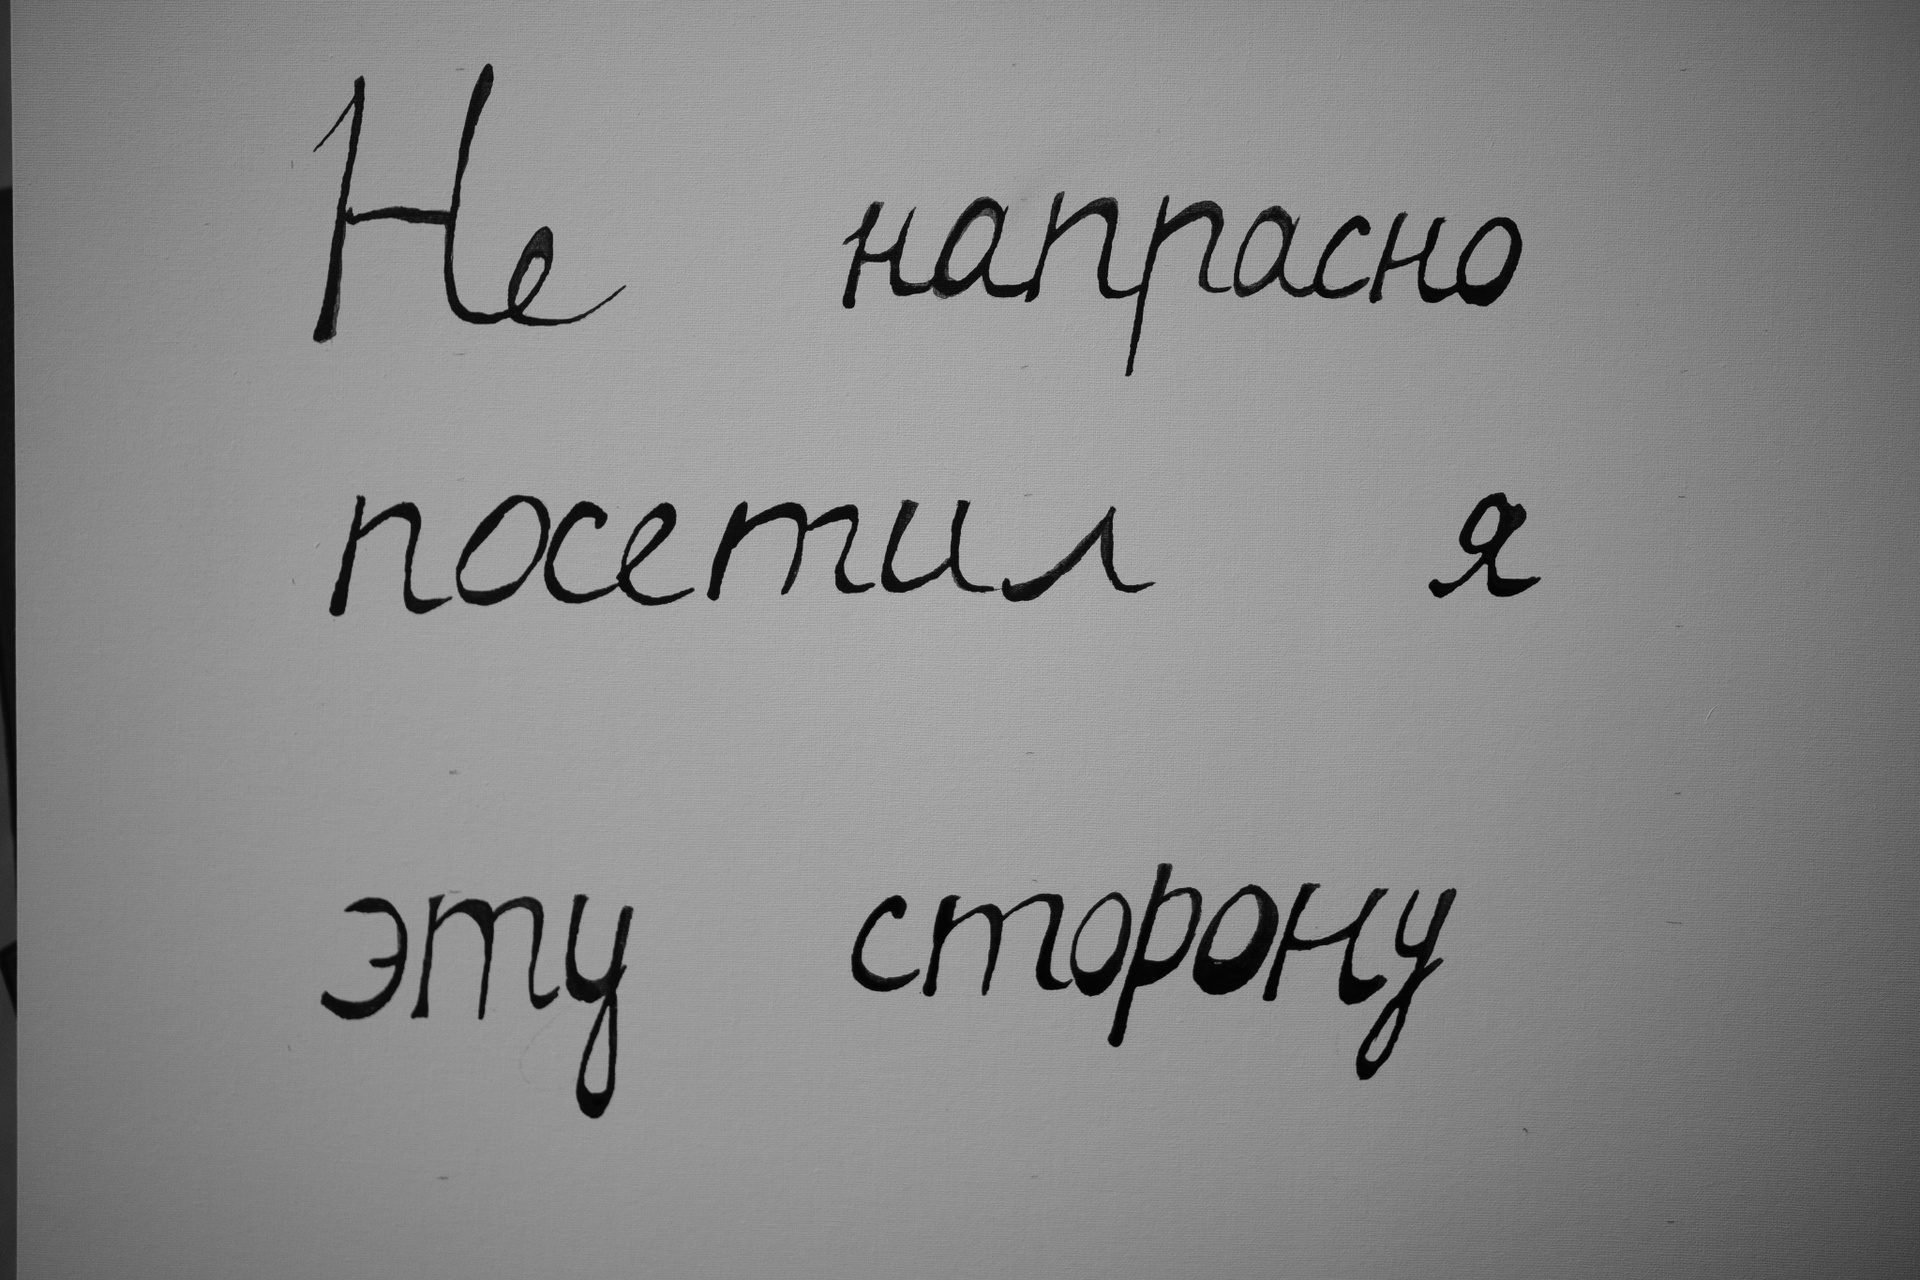 Не напрасно
посетил я
эту сторону